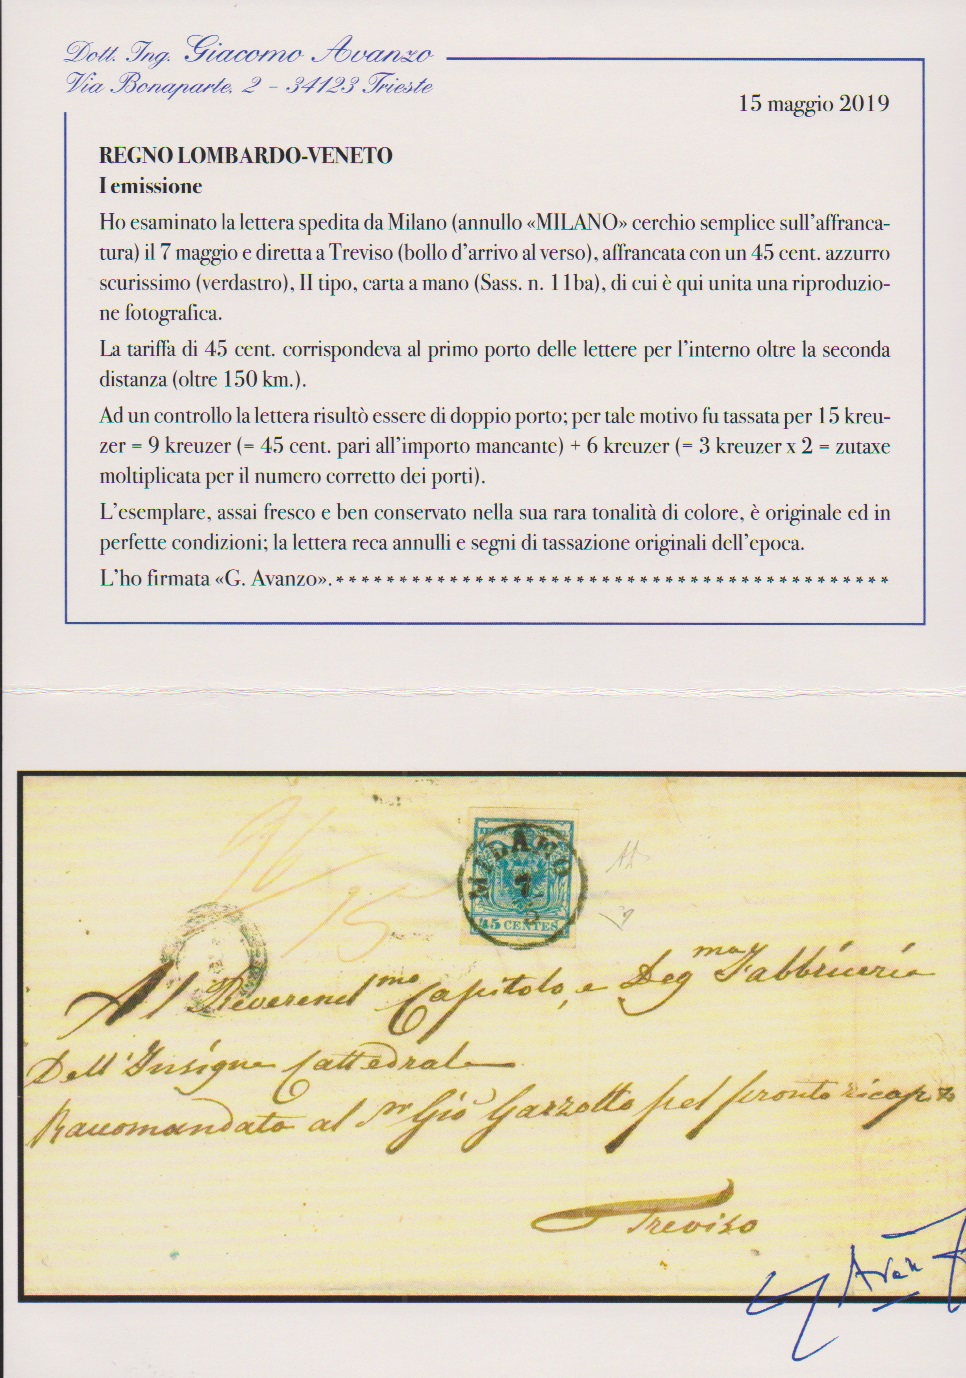 Dott. Ing. Giacomo Avanzo
Via Bonaparte, 2 - 34123 Trieste
15 maggio 2019
REGNO LOMBARDO-VENETO
I emissione
Ho esaminato la lettera spedita da Milano (annullo «MILANO» cerchio semplice sull'affranca-
tura) il 7 maggio e diretta a Treviso (bollo d'arrivo al verso), affrancata con un 45 cent. azzurro
scurissimo (verdastro), II tipo, carta a mano (Sass. n. 11ba), di cui è qui unita una riproduzio-
ne fotografica.
La tariffa di 45 cent. corrispondeva al primo porto delle lettere per l'interno oltre la seconda
distanza (oltre 150 km.).
Ad un controllo la lettera risultò essere di doppio porto; per tale motivo fu tassata per 15 kreu-
zer = 9 kreuzer (= 45 cent. pari all'importo mancante) + 6 kreuzer (= 3 kreuzer x 2 = zutaxe
moltiplicata per il numero corretto dei porti).
L'esemplare, assai fresco e ben conservato nella sua rara tonalità di colore, è originale ed in
perfette condizioni; la lettera reca annulli e segni di tassazione originali dell'epoca.
L'ho firmata «G. Avanzo». * * * * * * * * * * * * * * * * * * * * * * * * * * * * * * * * * * * * * * * * * * * *
MILANO
7
5
45 CENTES
15
Al Reverendmo Capitolo, e Degma Fabbriceria
Dell'Insigne Cattedrale
Raccomandata al Sr Gio Gazzotto pel pronto ricapito
Treviso